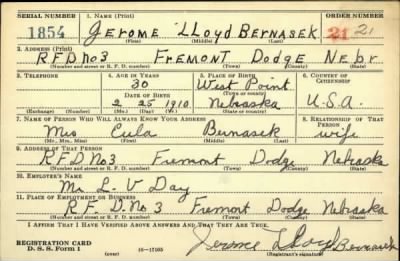 SERIAL NUMBER 1. NAME (Print) ORDER NUMBER
1854 JEROME LLOYD BERNASEK 21 21
(First) (Middle) (Last)
2. ADDRESS (Print)
RFD no 3 FREMONT Dodge Nebr.
(Number and street or R. F. D. number) (Town) (County) (State)
3. TELEPHONE 4. AGE IN YEARS 5. PLACE OF BIRTH 6. COUNTRY OF CITIZENSHIP
30 West Point
DATE OF BIRTH (Town or county)
2 25 1910 Nebraska U.S.A.
(Exchange) (Number) (Mo.) (Day) (Yr.) (State or country)
7. NAME OF PERSON WHO WILL ALWAYS KNOW YOUR ADDRESS 8. RELATIONSHIP OF THAT PERSON
Mrs Bernasek wife
(Mr., Mrs., Miss) (First) (Middle) (Last)
9. ADDRESS OF THAT PERSON
R.F.D. No 3 Fremont Dodge Nebraska
(Number and street or R. F. D. number) (Town) (County) (State)
10. EMPLOYER'S NAME
Mr L. V Day
11. PLACE OF EMPLOYMENT OR BUSINESS
R. F. D. No 3 Fremont Dodge Nebraska
(Number and street or R. F. D. number) (Town) (County) (State)
I AFFIRM THAT I HAVE VERIFIED ABOVE ANSWERS AND THAT THEY ARE TRUE.
REGISTRATION CARD Jerome Lloyd Bernasek
D. S. S. Form 1 (over) (Registrant's signature)